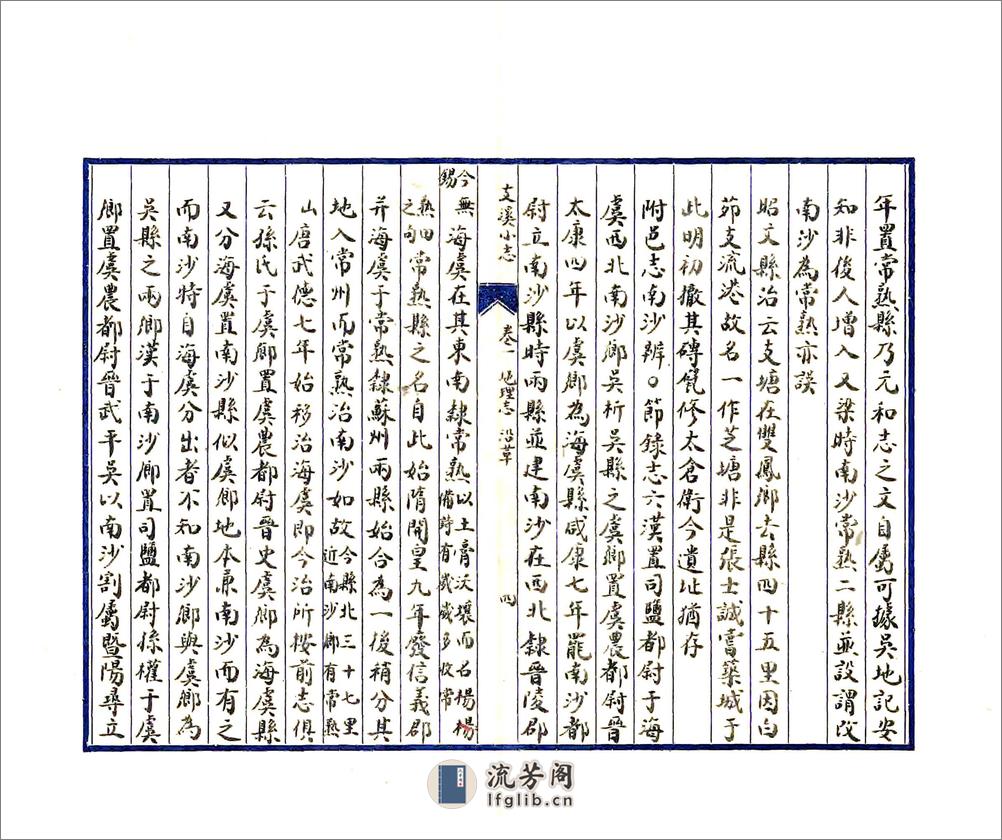 年置常熟縣乃元和志之文自屬可據吳地記安
知非後人增入又梁時南沙常熟二縣並設謂改
南沙為常熟亦誤
昭文縣治云支塘在雙鳳鄉去縣四十五里因白
茆支流港故名一作芝塘非是張士誠嘗築城于
此明初撤其磚甃修太倉衛今遺址猶存
附邑志南沙辨〇節錄志六漢置司鹽都尉于海
虞西北南沙鄉吳析吳縣之虞鄉置虞農都尉晉
太康四年以虞鄉為海虞縣咸康七年罷南沙都
尉立南沙縣時兩縣並建南沙在西北隸晉陵郡
支溪小志 卷一 地理志 沿革 四
今無錫海虞在其東南隸常熟以土膏沃壤而名楊楊備時有歲歲多收常
熟田之句常熟縣之名自此始隋開皇九年廢信義郡
并海虞于常熟隸蘇州兩縣始合為一後稍分其
地入常州而常熟治南沙如故今縣北三十七里近南沙鄉有常熟
山唐武德七年始移治海虞即今治所按前志俱
云孫氏于虞鄉置虞農都尉晉史虞鄉為海虞縣
又分海虞置南沙縣似虞鄉地本兼南沙而有之
而南沙特自海虞分出者不知南沙鄉與虞鄉為
吳縣之兩鄉漢于南沙鄉置司鹽都尉孫權于虞
鄉置虞農都尉晉武平吳以南沙割屬暨陽尋立
流芳阁
lfglib.cn